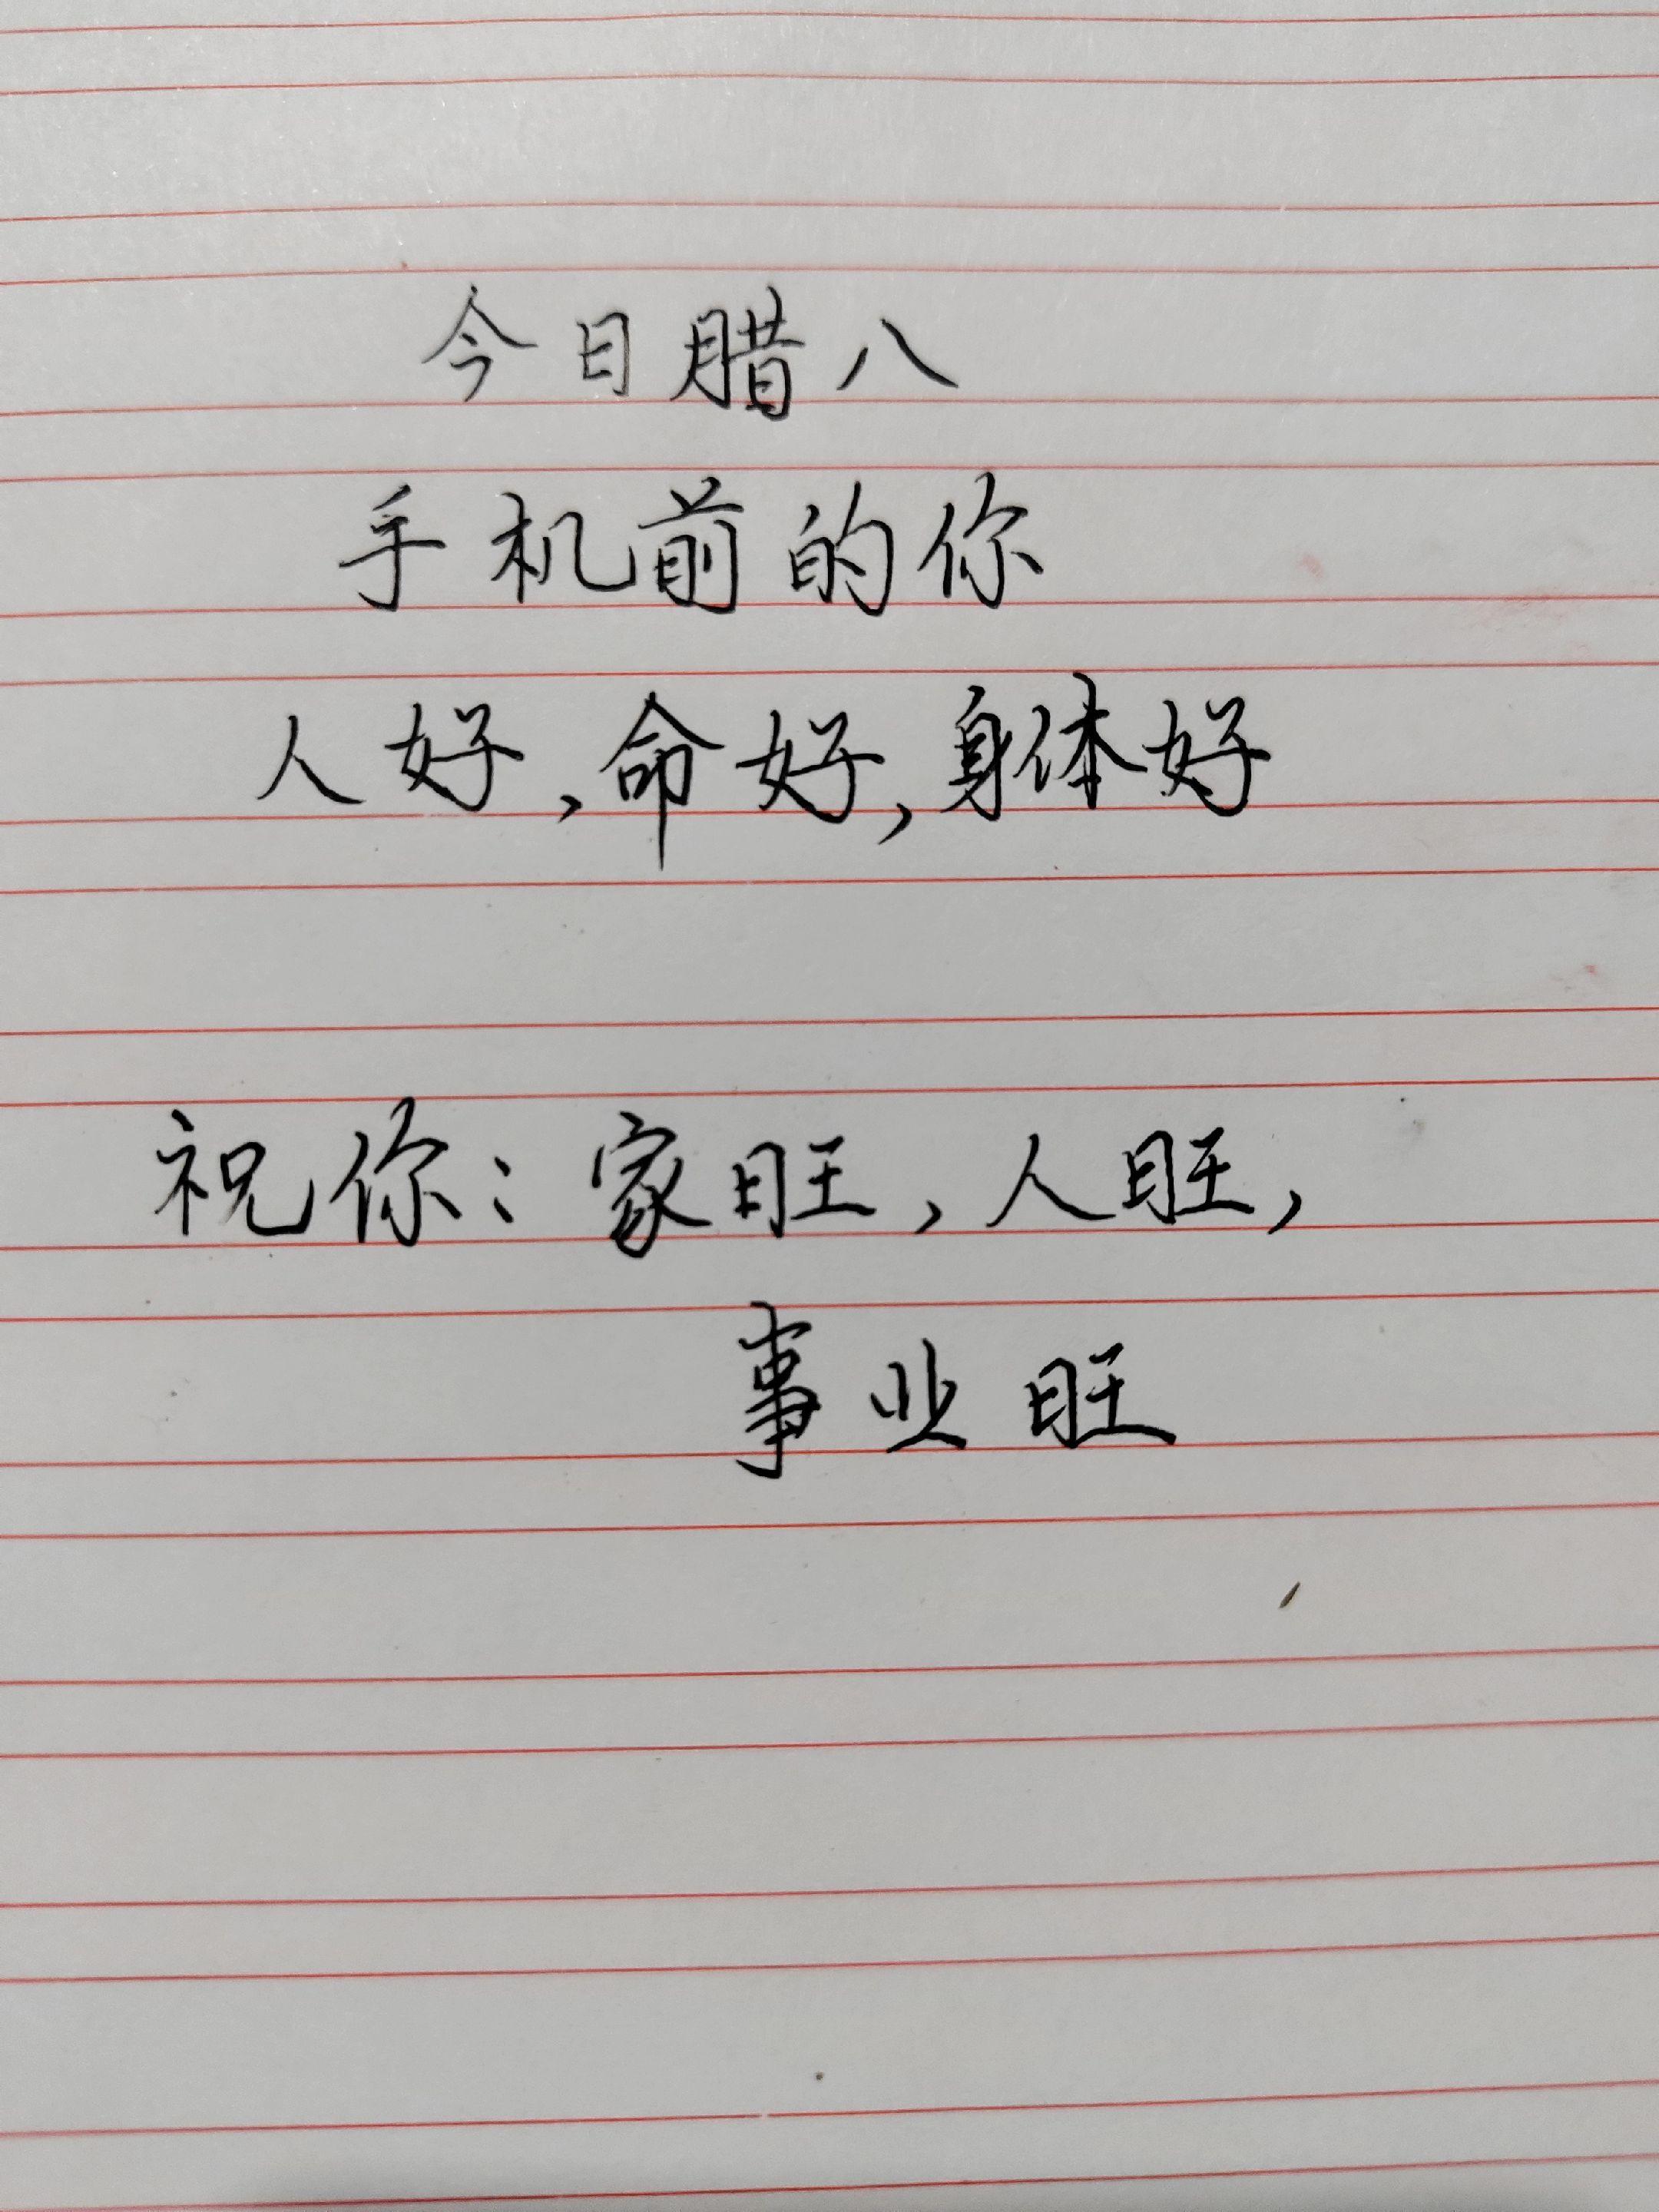 今日腊八
手机前的你
人好,命好,身体好
祝你：家旺，人旺，
事业旺